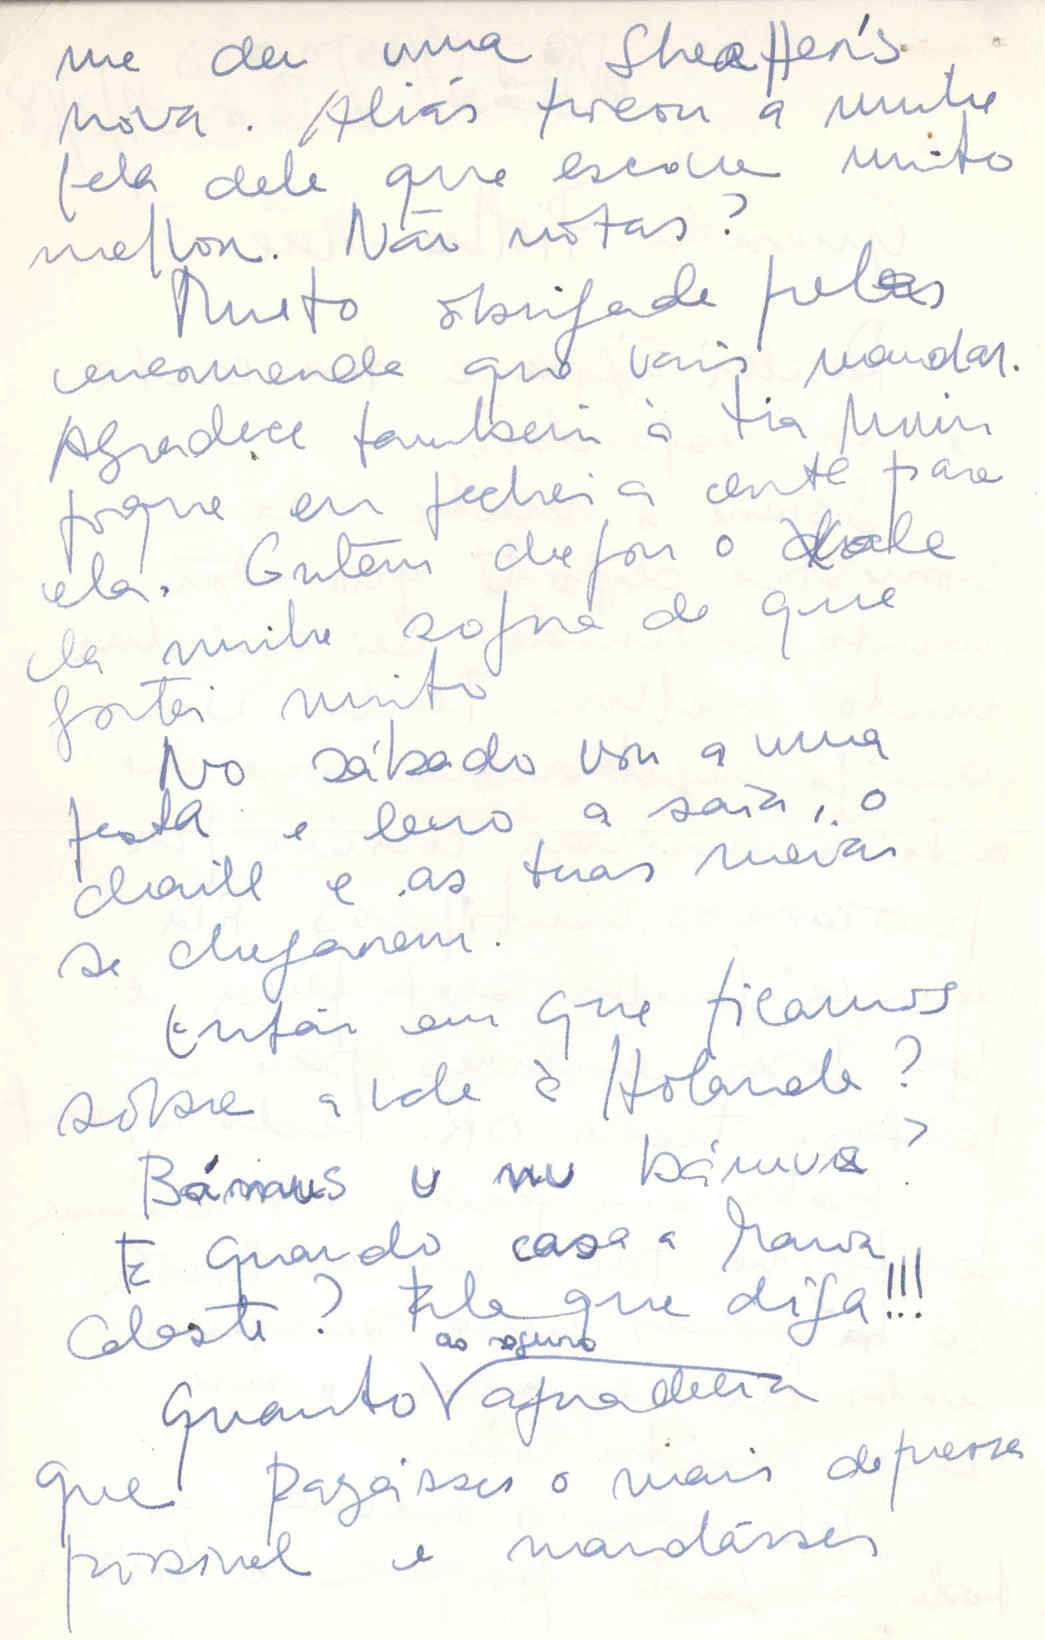 me deu uma Sheaffer's
nova. Aliás trocou a minha
pela dele que escreve muito
melhor. Não nótas?
Muito obrigada pelas
encomenda que vais mandar.
Agradece também à tia Mimi
porque eu fechei a carta para
ela. Ontem chegou o xaile
da minha sogra de que
gostei muito
No sábado vou a uma
festa e levo a saia, o
chaile e as tuas meias
se chegarem.
Então em que ficamos
sôbre a ida à Holanda?
Bámus u nu bámus?
E quando casa a Maria
Celeste? Ela que diga!!!
Quanto ao seguro agradecia
que pagásses o mais depressa
possivel e mandásses